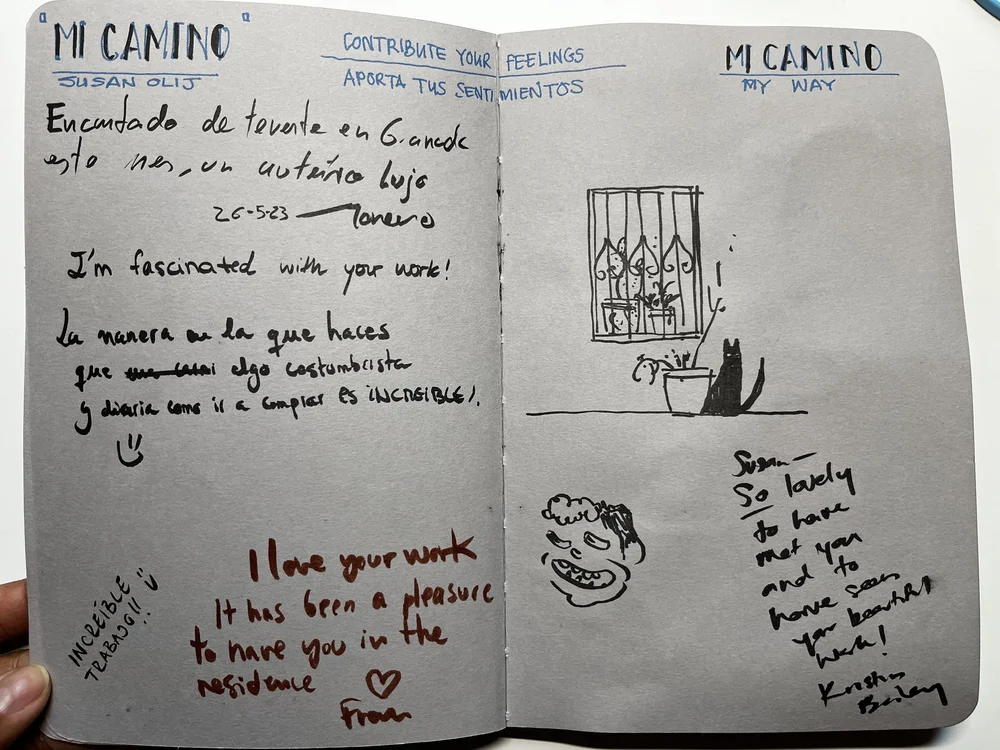 "MI CAMINO"
SUSAN OLIJ
CONTRIBUTE YOUR FEELINGS
APORTA TUS SENTIMIENTOS
Encantado de tenerte en Granada
este mes, un auténico lujo
26-5-23
I'm fascinated with your work!
La manera en la que haces
que algo costumbrista
y diaria como ir a comprar ES INCREIBLE!.
INCREÍBLE
TRABAJO!!
I love your work
It has been a pleasure
to have you in the
residence ♡
Fran
MI CAMINO
MY WAY
Susan—
So lovely
to have
met you
and to
have seen
your beautiful
work!
Kristin
Bailey